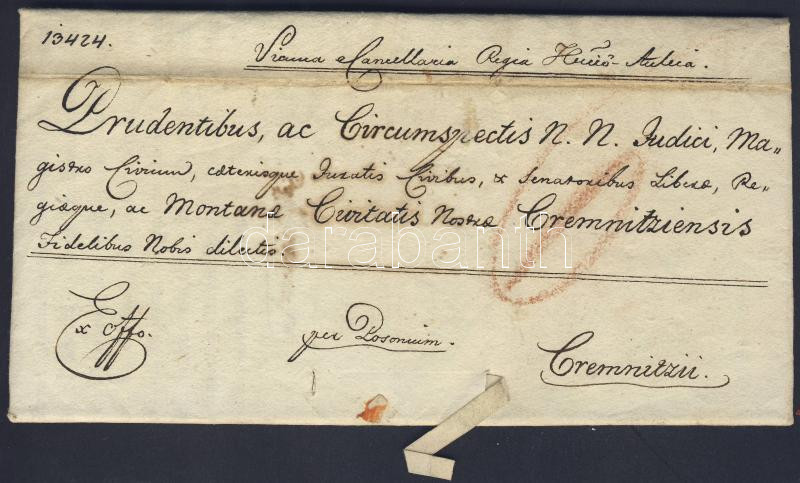 13424.
Vienna e Cancellaria Regia Hung̃o-Aulica.
Prudentibus, ac Circumspectis N. N. Judici, Ma=
gistro Civium, cæterisque Juratis Civibus, & Senatoribus Liberæ, Re=
giæque, ac Montanæ Civitatis Nostræ Cremnitziensis
Fidelibus Nobis dilectis.
darabanth
Ex offo.
per Posonium.
Cremnitzii.